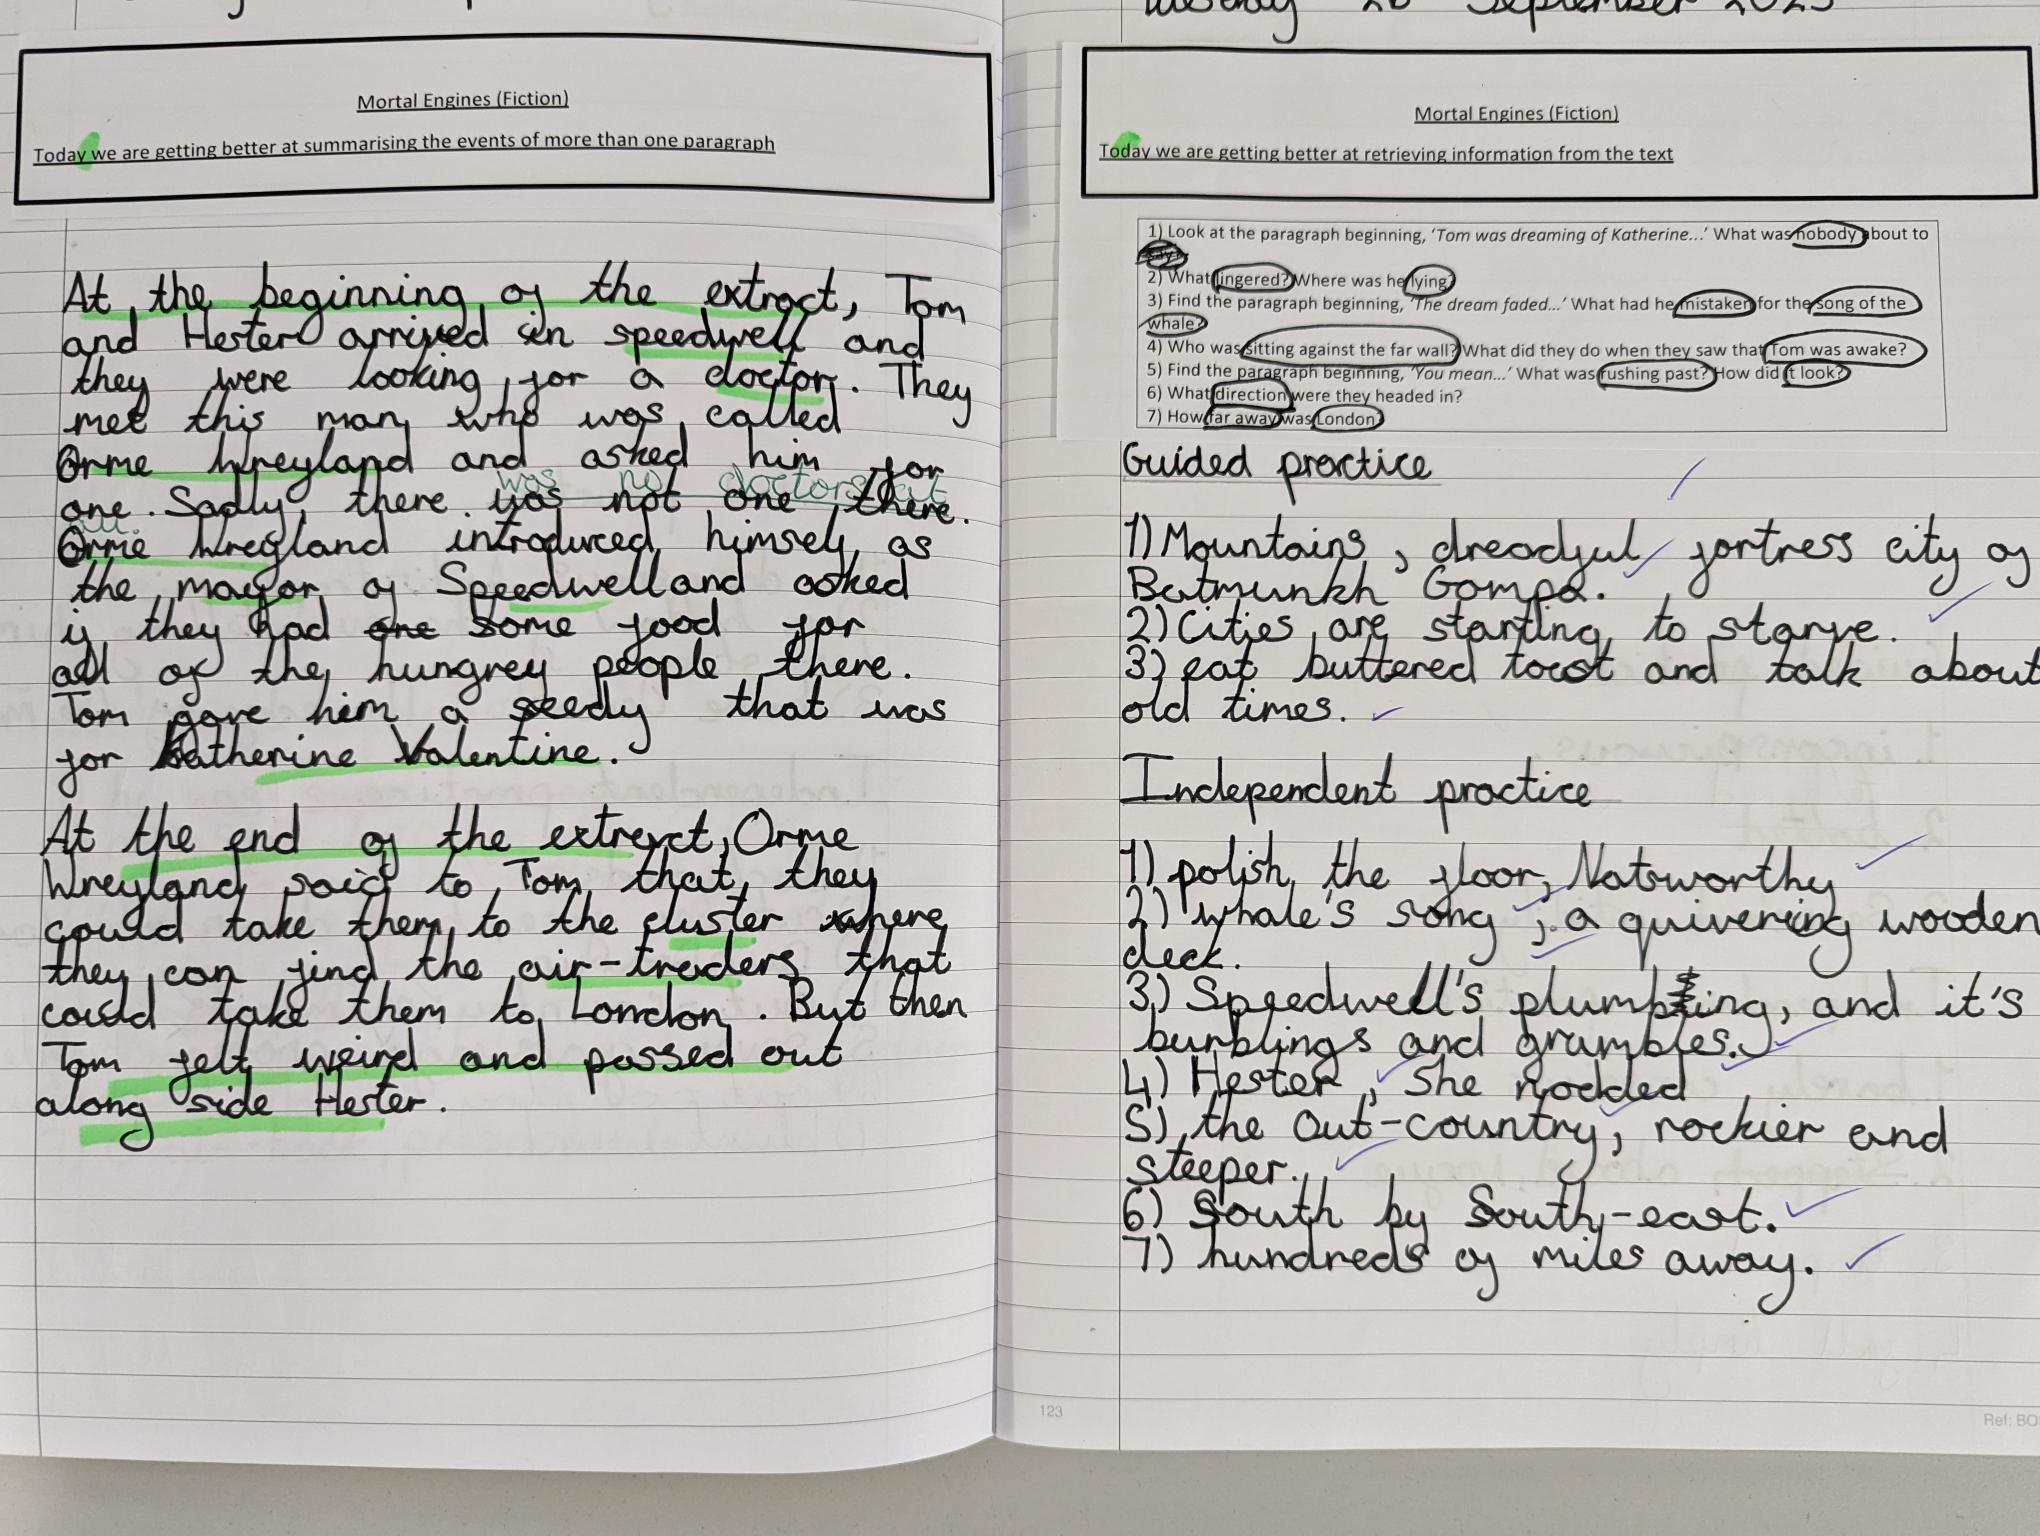 Mortal Engines (Fiction)
Today we are getting better at summarising the events of more than one paragraph
At the beginning of the extract, Tom
and Hester arrived in speedwell and
they were looking for a doctor. They
met this man who was called
Orme Wreyland and asked him for
was no doctors at
one. Sadly, there was not one there.
all.
Orme Wreyland introduced himself as
the mayor of Speedwell and asked
if they had one some food for
all of the hungrey people there.
Tom gave him a seedy that was
for Katherine Valentine.
At the end of the extreyct, Orme
Wreyland said to Tom that they
could take them to the cluster where
they can find the air-traders that
could take them to London. But then
Tom felt weird and passed out
along side Hester.
Tuesday 26 September 2023
Mortal Engines (Fiction)
Today we are getting better at retrieving information from the text
1) Look at the paragraph beginning, 'Tom was dreaming of Katherine...' What was nobody about to
say?
2) What lingered? Where was he lying?
3) Find the paragraph beginning, 'The dream faded...' What had he mistaken for the song of the
whale?
4) Who was sitting against the far wall? What did they do when they saw that Tom was awake?
5) Find the paragraph beginning, 'You mean...' What was rushing past? How did it look?
6) What direction were they headed in?
7) How far away was London?
Guided practice
1) Mountains, dreadful fortress city of
Batmunkh Gompa.
2) Cities are starting to starve.
3) eat buttered toast and talk about
old times.
Independent practice
1) polish the floor, Natsworthy
2) whale's song ; a quivering wooden
deck.
3) Speedwell's plumbing, and it's
burblings and grumbles.
4) Hester, She nodded
5) the Out-country, rockier and
steeper.
6) South by South-east.
7) hundreds of miles away.
123
Ref: BO